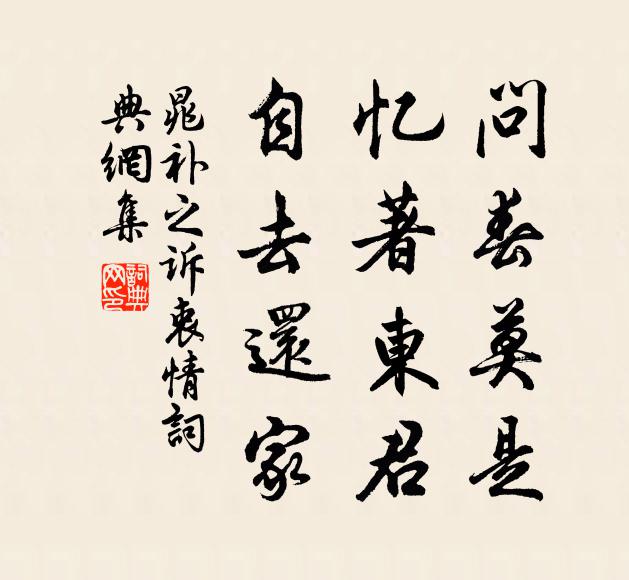 问春莫是
忆著東君
自去還家
晁补之诉衷情詞
典網集
詞典网印